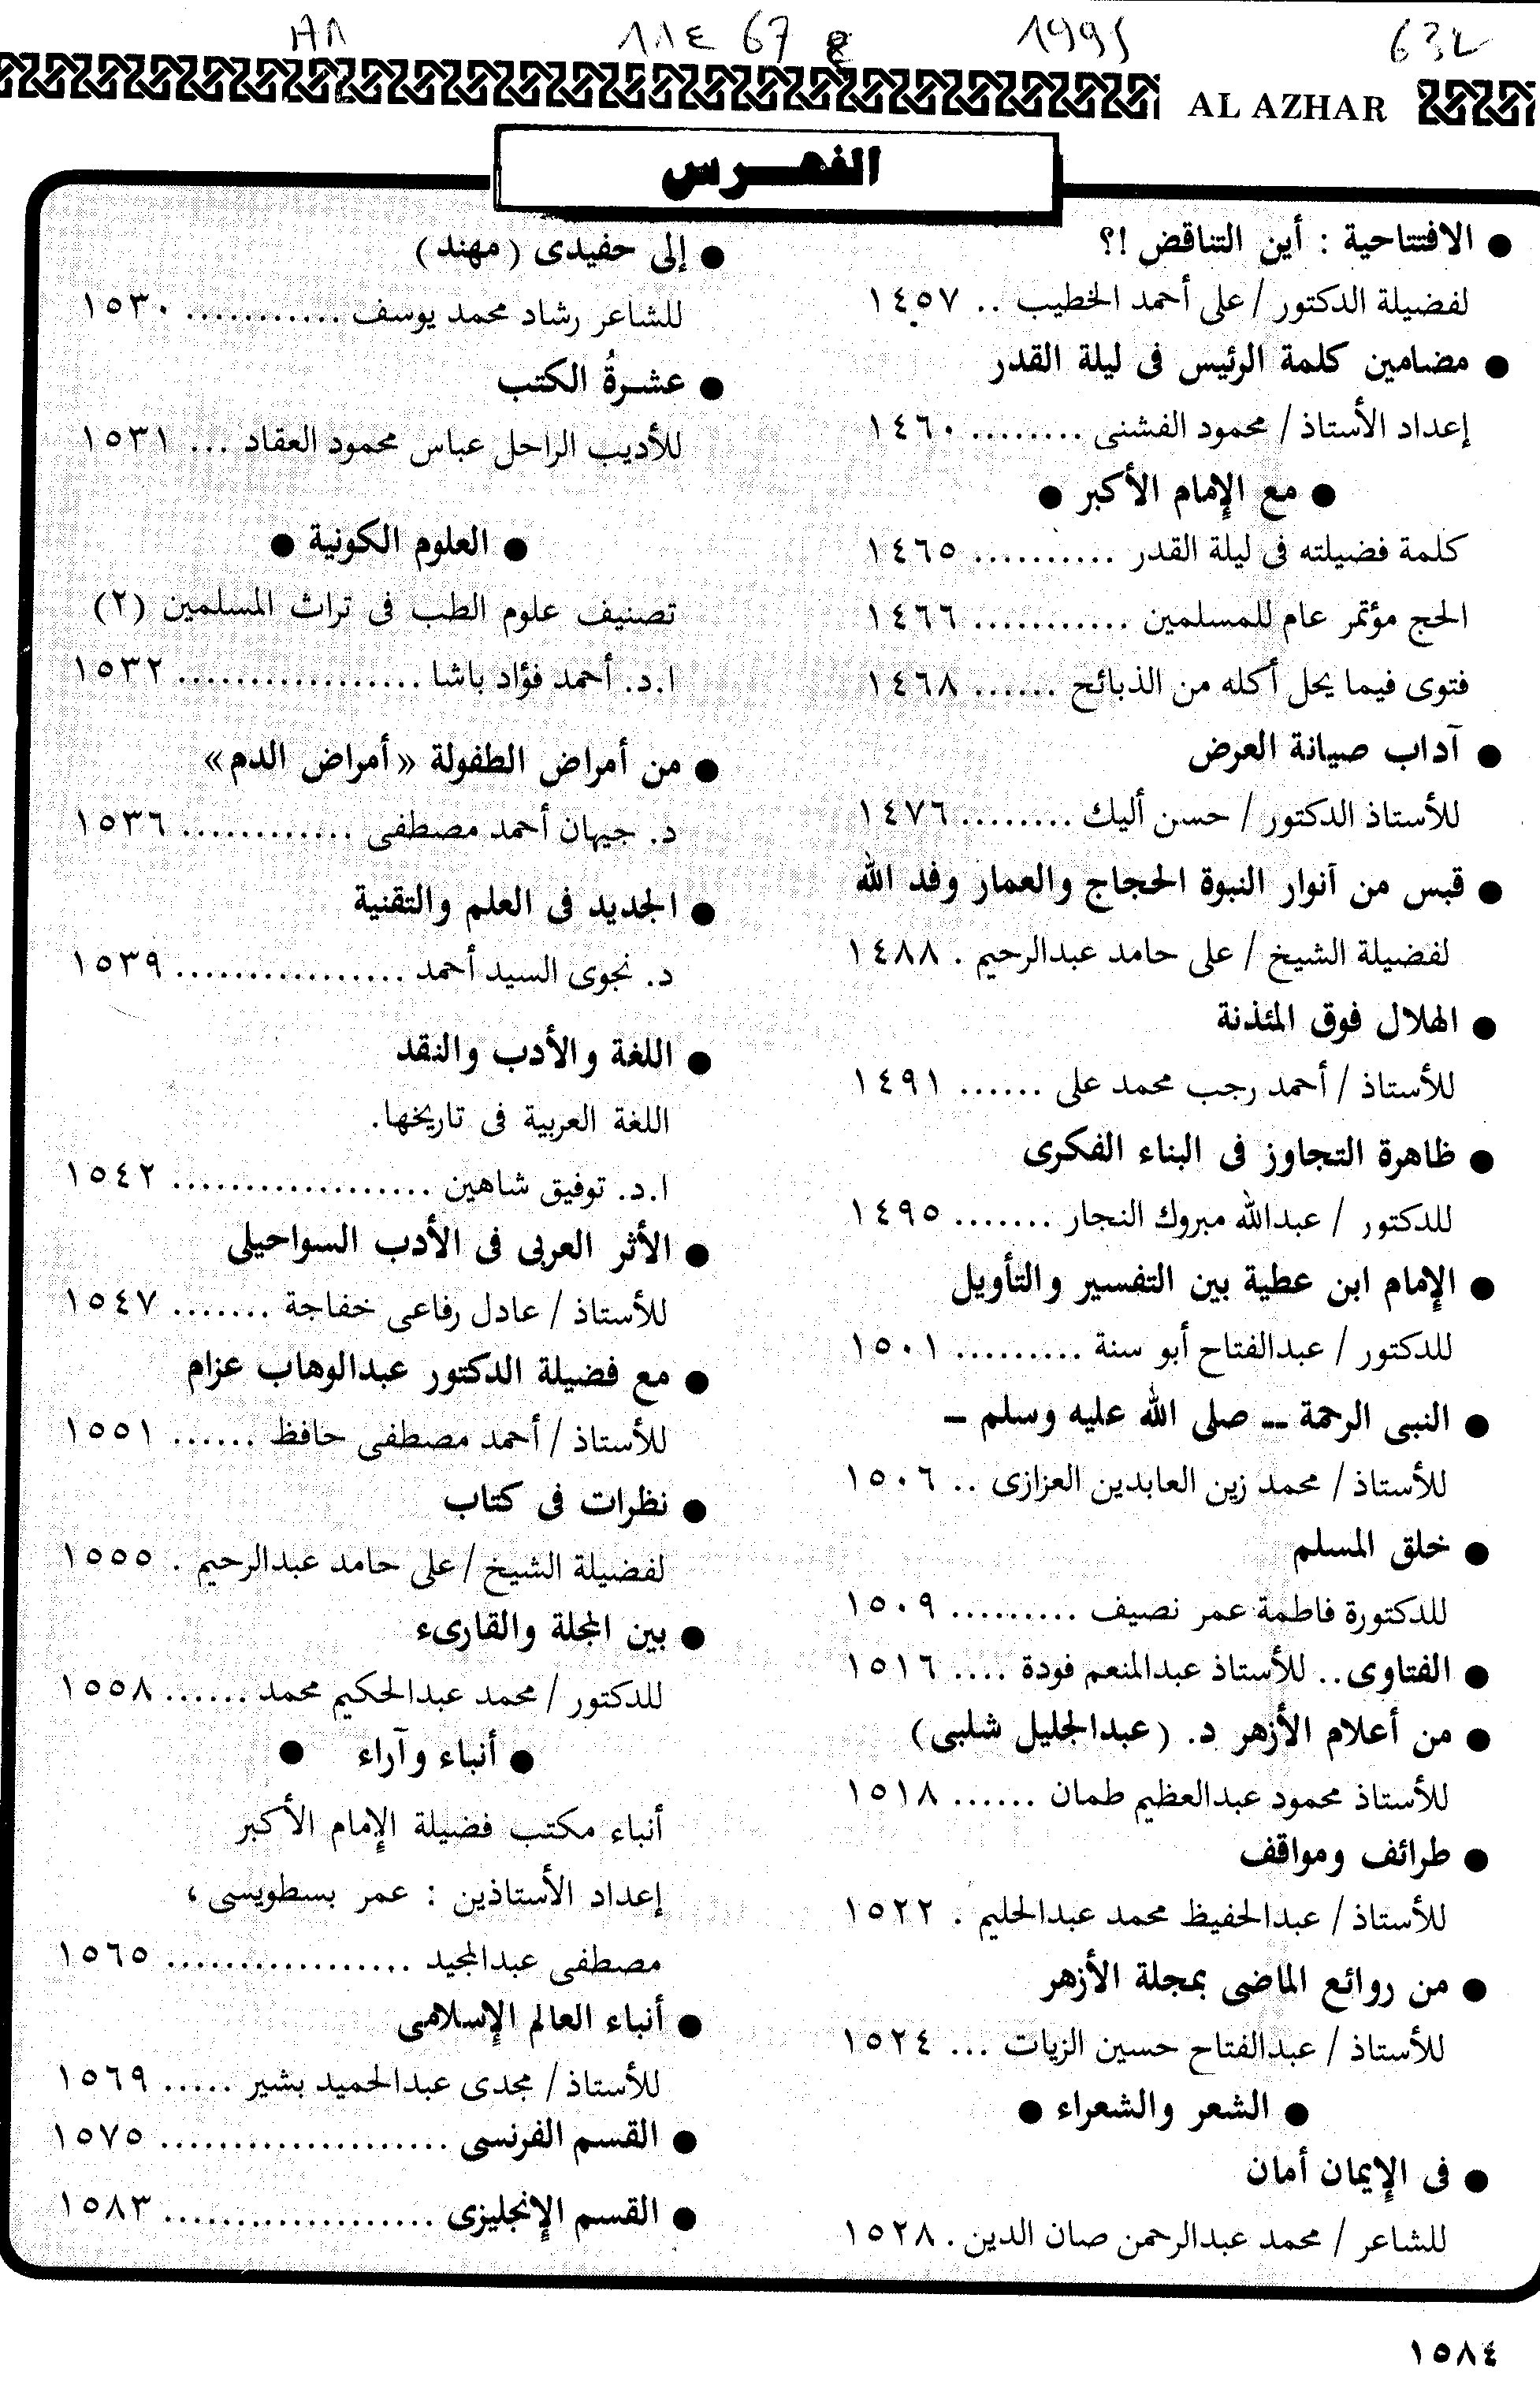 AL AZHAR
الفهرس
● الافتتاحية : أين التناقض !؟
لفضيلة الدكتور / على أحمد الخطيب .. ١٤٥٧
● مضامين كلمة الرئيس فى ليلة القدر
إعداد الأستاذ / محمود الفشنى ........ ١٤٦٠
● مع الإمام الأكبر ●
كلمة فضيلته فى ليلة القدر .......... ١٤٦٥
الحج مؤتمر عام للمسلمين ........... ١٤٦٦
فتوى فيما يحل أكله من الذبائح ...... ١٤٦٨
● آداب صيانة العرض
للأستاذ الدكتور / حسن أليك ........ ١٤٧٦
● قبس من أنوار النبوة الحجاج والعمار وفد الله
لفضيلة الشيخ / على حامد عبدالرحيم . ١٤٨٨
● الهلال فوق المئذنة
للأستاذ / أحمد رجب محمد على ...... ١٤٩١
● ظاهرة التجاوز فى البناء الفكرى
للدكتور / عبدالله مبروك النجار ....... ١٤٩٥
● الإمام ابن عطية بين التفسير والتأويل
للدكتور / عبدالفتاح أبو سنة ......... ١٥٠١
● النبى الرحمة ــ صلى الله عليه وسلم ــ
للأستاذ / محمد زين العابدين العزازى .. ١٥٠٦
● خلق المسلم
للدكتورة فاطمة عمر نصيف ......... ١٥٠٩
● الفتاوى.. للأستاذ عبدالمنعم فودة .... ١٥١٦
● من أعلام الأزهر د. (عبدالجليل شلبى)
للأستاذ محمود عبدالعظيم طمان ...... ١٥١٨
● طرائف ومواقف
للأستاذ / عبدالحفيظ محمد عبدالحليم . ١٥٢٢
● من روائع الماضى بمجلة الأزهر
للأستاذ / عبدالفتاح حسين الزيات ... ١٥٢٤
● الشعر والشعراء ●
● فى الإيمان أمان
للشاعر / محمد عبدالرحمن صان الدين . ١٥٢٨
● إلى حفيدى (مهند)
للشاعر رشاد محمد يوسف ........... ١٥٣٠
● عشرةُ الكتب
للأديب الراحل عباس محمود العقاد ... ١٥٣١
● العلوم الكونية ●
تصنيف علوم الطب فى تراث المسلمين (٢)
ا.د. أحمد فؤاد باشا ................. ١٥٣٢
● من أمراض الطفولة «أمراض الدم»
د. جيهان أحمد مصطفى ............ ١٥٣٦
● الجديد فى العلم والتقنية
د. نجوى السيد أحمد ................ ١٥٣٩
● اللغة والأدب والنقد
اللغة العربية فى تاريخها.
ا.د. توفيق شاهين .................. ١٥٤٢
● الأثر العربى فى الأدب السواحيلى
للأستاذ / عادل رفاعى خفاجة ....... ١٥٤٧
● مع فضيلة الدكتور عبدالوهاب عزام
للأستاذ / أحمد مصطفى حافظ ...... ١٥٥١
● نظرات فى كتاب
لفضيلة الشيخ / على حامد عبدالرحيم . ١٥٥٥
● بين المجلة والقارىء
للدكتور / محمد عبدالحكيم محمد ...... ١٥٥٨
● أنباء وآراء ●
أنباء مكتب فضيلة الإمام الأكبر
إعداد الأستاذين : عمر بسطويسى ،
مصطفى عبدالمجيد ................. ١٥٦٥
● أنباء العالم الإسلامى
للأستاذ / مجدى عبدالحميد بشير ..... ١٥٦٩
● القسم الفرنسى .................... ١٥٧٥
● القسم الإنجليزى ................... ١٥٨٣
١٥٨٤